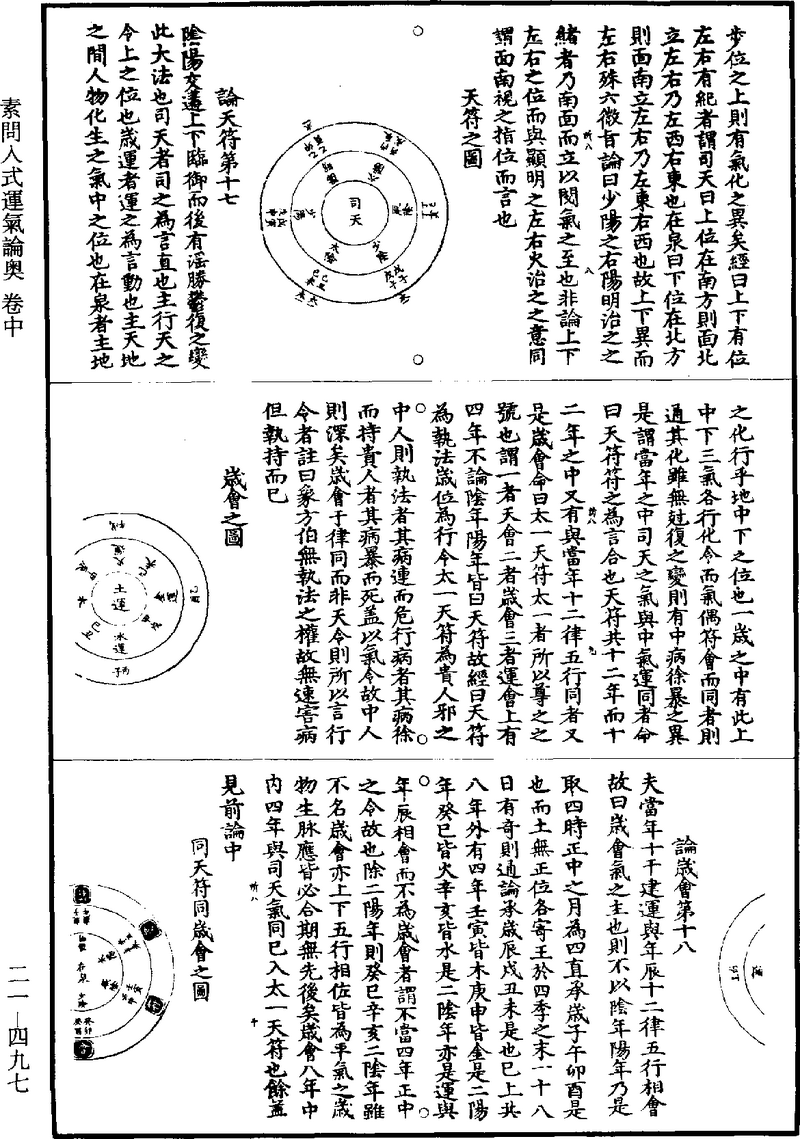 素問入式運氣論奧 卷中
二一—四九七
步位之上則有氣化之異矣經曰上下有位
左右有紀者謂司天曰上位在南方則面北
立左右乃左西右東也在泉曰下位在北方
則面南立左右乃左東右西也故上下異而
左右殊六微旨論曰少陽之右陽明治之之
緒者乃南面而立以閱氣之至也非論上下
左右之位而與顯明之左右火治之之意同
謂面南視之指位而言也
天符之圖
司天
論天符第十七
陰陽交遘上下臨御而後有淫勝鬱復之變
此大法也司天者司之為言直也主行天之
令上之位也歲運者運之為言動也主天地
之間人物化生之氣中之位也在泉者主地
之化行乎地中下之位也一歲之中有此上
中下三氣各行化令而氣偶符會而同者則
通其化雖無尅復之變則有中病徐暴之異
是謂當年之中司天之氣與中氣運同者命
曰天符符之為言合也天符共十二年而十
二年之中又有與當年十二律五行同者又
是歲會命曰太一天符太一者所以尊之之
號也謂一者天會二者歲會三者運會上有
四年不論陰年陽年皆曰天符故經曰天符
為執法歲位為行令太一天符為貴人邪之
中人則執法者其病速而危行病者其病徐
而持貴人者其病暴而死蓋以氣令故中人
則深矣歲會于律同而非天令則所以言行
令者註曰象方伯無執法之權故無速害病
但執持而已
歲會之圖
土運
水運
論歲會第十八
夫當年十干建運與年辰十二律五行相會
故曰歲會氣之主也則不以陰年陽年乃是
取四時正中之月為四直承歲子午卯酉是
也而土無正位各寄王於四季之末一十八
日有奇則通論承歲辰戌丑未是也已上共
八年外有四年壬寅皆木庚申皆金是二陽
年癸巳皆火辛亥皆水是二陰年亦是運與
年辰相會而不為歲會者謂不當四年正中
之令故也除二陽年則癸巳辛亥二陰年雖
不名歲會亦上下五行相佐皆為平氣之歲
物生脉應皆必合期無先後矣歲會八年中
內四年與司天氣同已入太一天符也餘蓋
見前論中
同天符同歲會之圖
在泉